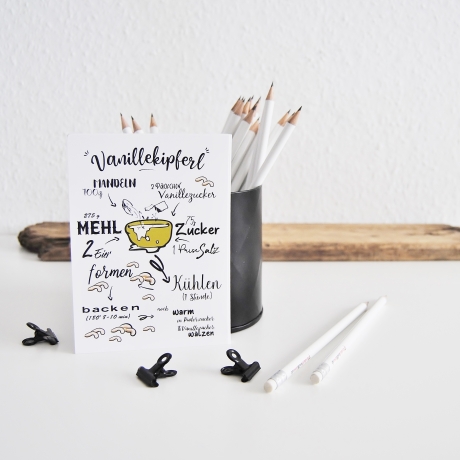 "Vanillekipferl"
MANDELN
100g
2 Päckchen
Vanillezucker
275 g
MEHL
75g
Zucker
2 Eier
1 Prise Salz
formen
Kühlen
(1 Stunde)
backen
(180° 8-10 min)
noch warm
in Puderzucker
& Vanillezucker
wälzen